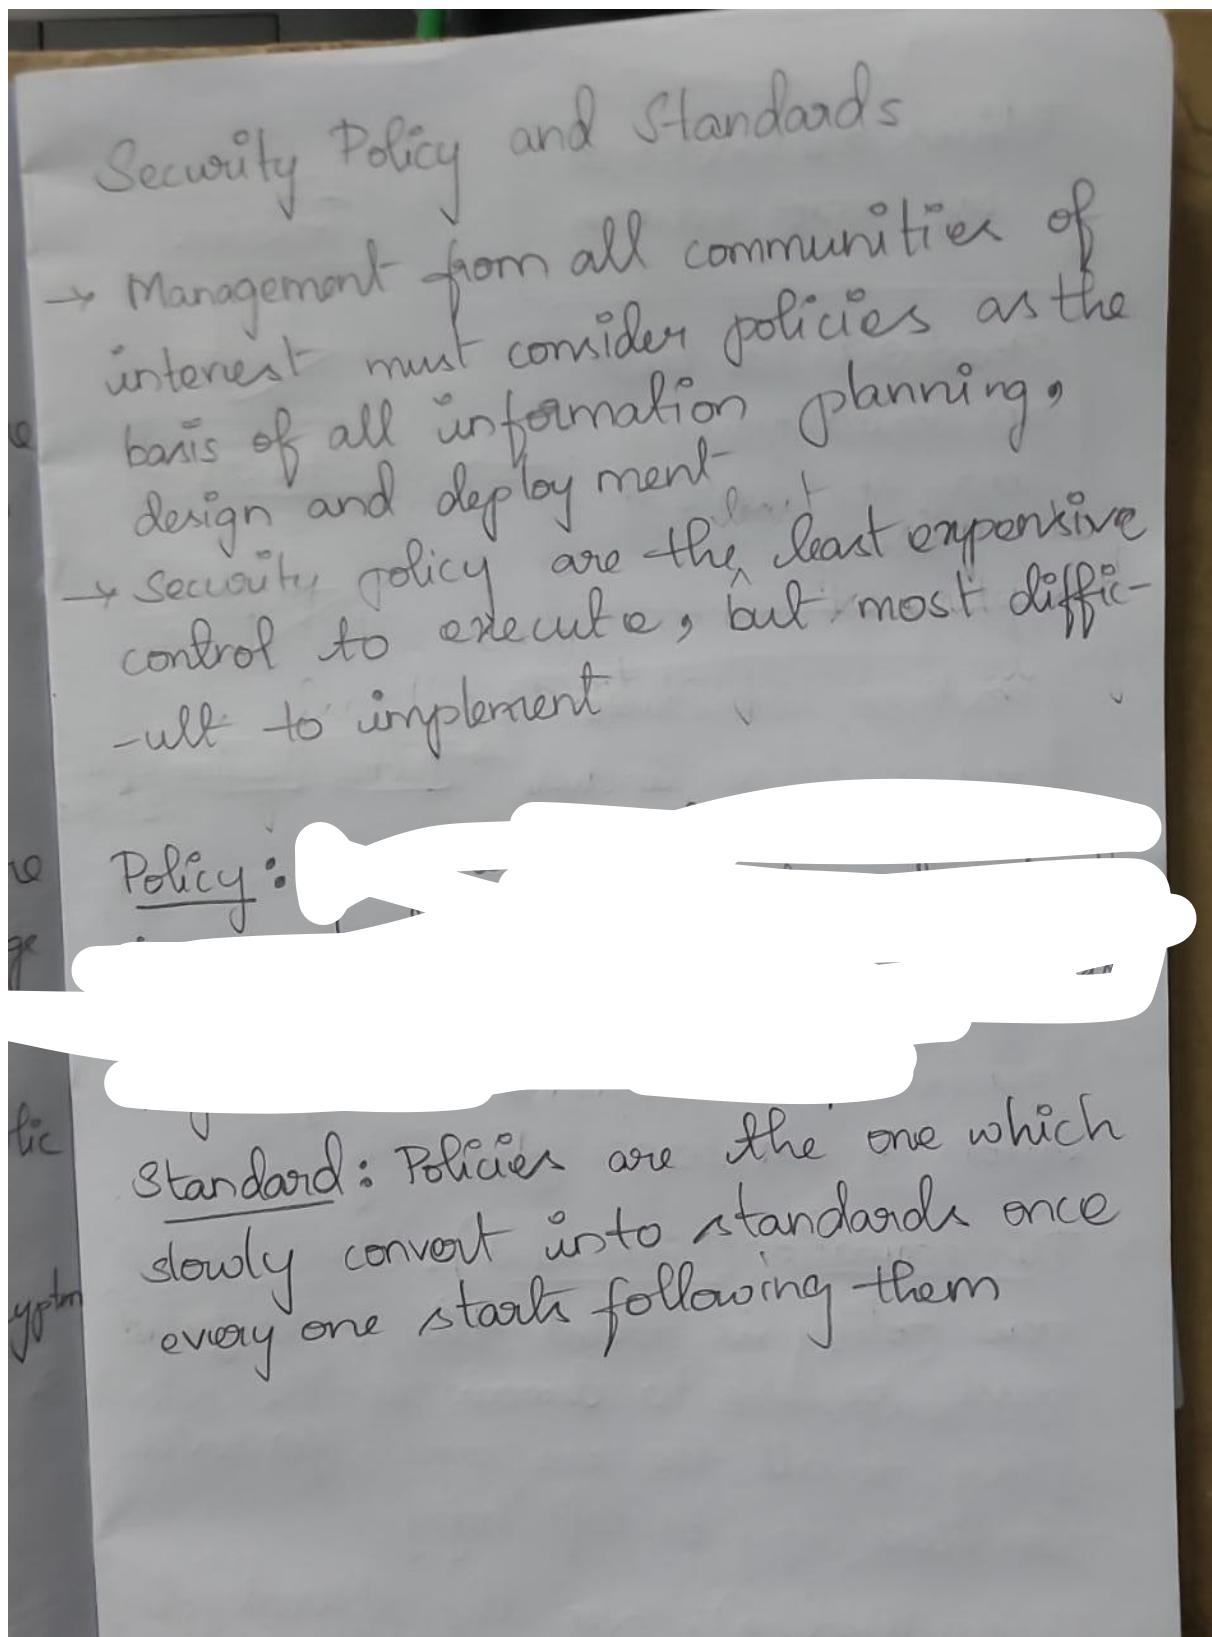 Security Policy and Standards
→ Management from all communities of
interest must consider policies as the
basis of all information planning,
design and deployment
→ Security policy are the least expensive
control to execute, but most diffic-
-ult to implement
Policy:
Standard: Policies are the one which
slowly convert into standards once
every one starts following them